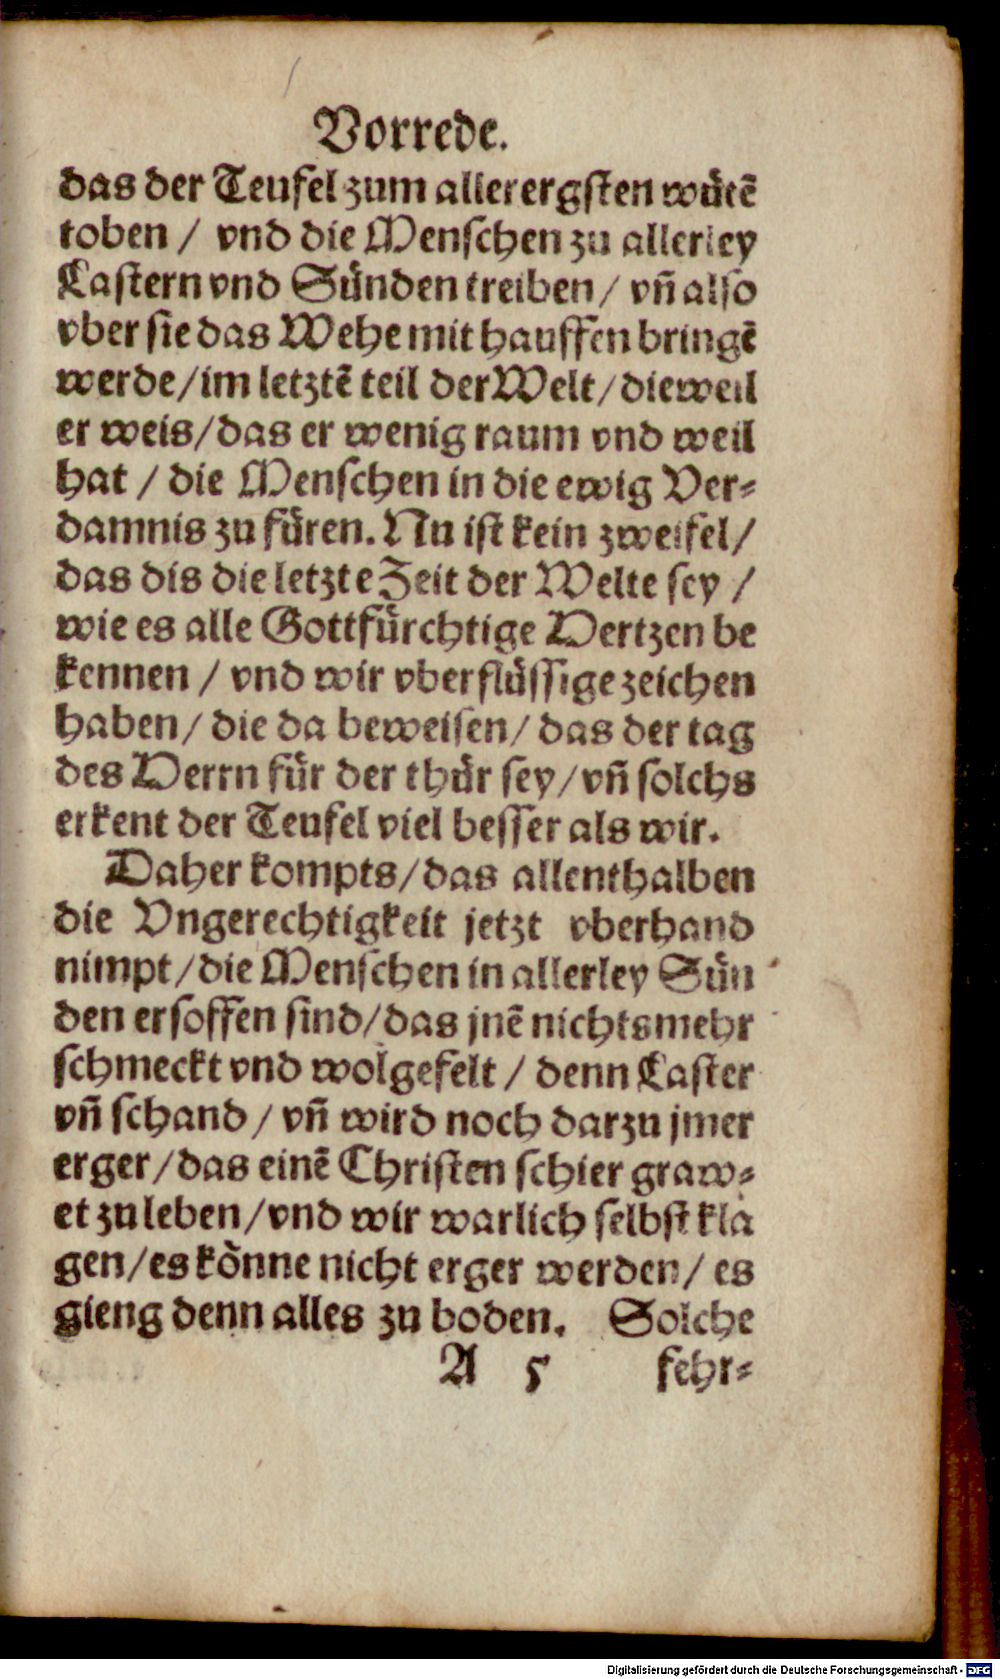 Vorrede.
das der Teufel zum allerergsten wütē
toben / vnd die Menschen zu allerley
Lastern vnd Sünden treiben / vn̄ also
vber sie das Wehe mit hauffen bringē
werde / im letztē teil der Welt / dieweil
er weis / das er wenig raum vnd weil
hat / die Menschen in die ewig Ver⸗
damnis zu füren. Nu ist kein zweifel /
das dis die letzte Zeit der Welte sey /
wie es alle Gottfürchtige Hertzen be
kennen / vnd wir vberflüssige zeichen
haben / die da beweisen / das der tag
des Herrn für der thür sey / vn̄ solchs
erkent der Teufel viel besser als wir.
Daher kompts / das allenthalben
die Vngerechtigkeit jetzt vberhand
nimpt / die Menschen in allerley Sün
den ersoffen sind / das jnē nichts mehr
schmeckt vnd wolgefelt / denn Laster
vn̄ schand / vn̄ wird noch darzu jmer
erger / das einē Christen schier graw⸗
et zu leben / vnd wir warlich selbst kla
gen / es könne nicht erger werden / es
gieng denn alles zu boden. Solche
A 5 fehr⸗
Digitalisierung gefördert durch die Deutsche Forschungsgemeinschaft - DFG